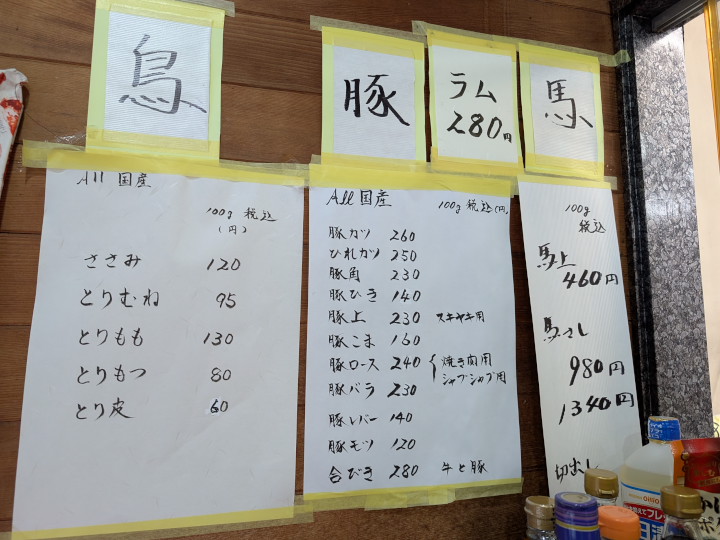 鳥
All 国産
100g 税込
(円)
ささみ 120
とりむね 95
とりもも 130
とりもつ 80
とり皮 60
豚
All 国産 100g 税込(円)
豚カツ 260
ひれカツ 250
豚角 230
豚ひき 140
豚上 230 スキヤキ用
豚こま 160
豚ロース 240 焼き肉用
シャブシャブ用
豚バラ 230
豚レバー 140
豚モツ 120
合びき 280 牛と豚
ラム
280円
馬
100g
税込
馬上
460円
馬さし
980円
1340円
切出し